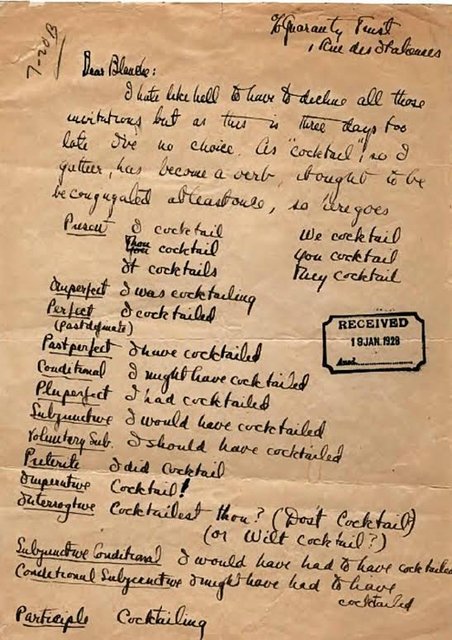 7-20B
℅ Guaranty Trust
1, Rue des Italiennes
Dear Blanche:
I hate like hell to have to decline all those
invitations but as this is three days too
late I've no choice. As "cocktail", so I
gather, has become a verb, it ought to be
be conjugated at least once, so here goes
Present I cocktail We cocktail
Thou cocktail You cocktail
It cocktails They cocktail
Imperfect I was cocktailing
Perfect I cocktailed
(past definate)
Past perfect I have cocktailed
Conditional I might have cocktailed
Pluperfect I had cocktailed
Subjunctive I would have cocktailed
Voluntary Sub. I should have cocktailed
Preterite I did cocktail
Imperative Cocktail!
Interrogtive Cocktailest thou? (Dos't Cocktail)
(or Wilt cocktail?)
Subjunctive Conditional I would have had to have cocktailed
Conditional Subjunctive I might have had to have
cocktailed
Participle Cocktailing
RECEIVED
19 JAN. 1928